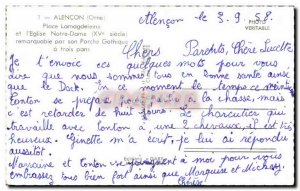 7 — ALENÇON (Orne)
Place Lamagdelaine
et l'Eglise Notre-Dame (XVe siècle)
remarquable par son Porche Gothique
à trois pans
Alençon le 3.9.58.
PHOTO
VERITABLE
Chers Parents, Chère
Je t'envoie ces quelques mots pour vous
dire que nous sommes tous en bonne santé ainsi
que le Dack. En ce moment le temps est
tonton se prépare à la chasse, mais
c'est retarder de huit jours. Le charcutier qui
travaille avec tonton à une 2 chevaux, il est très
heureux. Ginette m'a écrit je lui ai répondu
aussitôt.
Marraine et tonton se à moi pour vous
embrasser tous bien fort ainsi que et